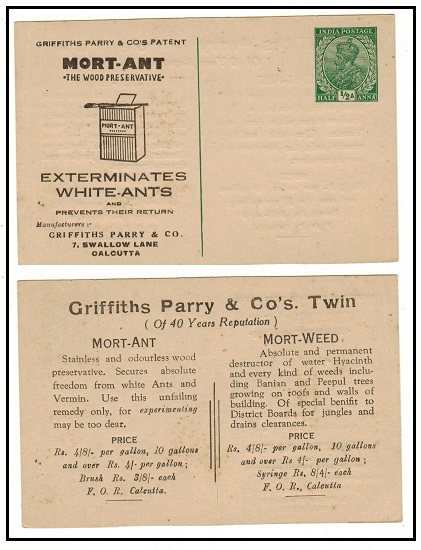 GRIFFITHS PARRY & CO'S PATENT
MORT-ANT
•THE WOOD PRESERVATIVE•
MORT-ANT
EXTERMINATES
WHITE-ANTS
AND
PREVENTS THEIR RETURN
Manufacturers :-
GRIFFITHS PARRY & CO.
7, SWALLOW LANE
CALCUTTA
INDIA POSTAGE
HALF ½A ANNA
Griffiths Parry & Co's. Twin
( Of 40 Years Reputation )
MORT-ANT
Stainless and odourless wood
preservative. Secures absolute
freedom from white Ants and
Vermin. Use this unfailing
remedy only, for experimenting
may be too dear.
PRICE
Rs. 4/8/- per gallon, 10 gallons
and over Rs. 4/- per gallon ;
Brush Rs. 3/8/- each
F. O. R., Calcutta.
MORT-WEED
Absolute and permanent
destructor of water Hyacinth
and every kind of weeds inclu-
ding Banian and Peepul trees
growing on roofs and walls of
building. Of special benifit to
District Boards for jungles and
drains clearances.
PRICE
Rs. 4/8/- per gallon, 10 gallons
and over Rs 4/- per gallon ;
Syringe Rs. 8/4/- each
F. O. R., Calcutta